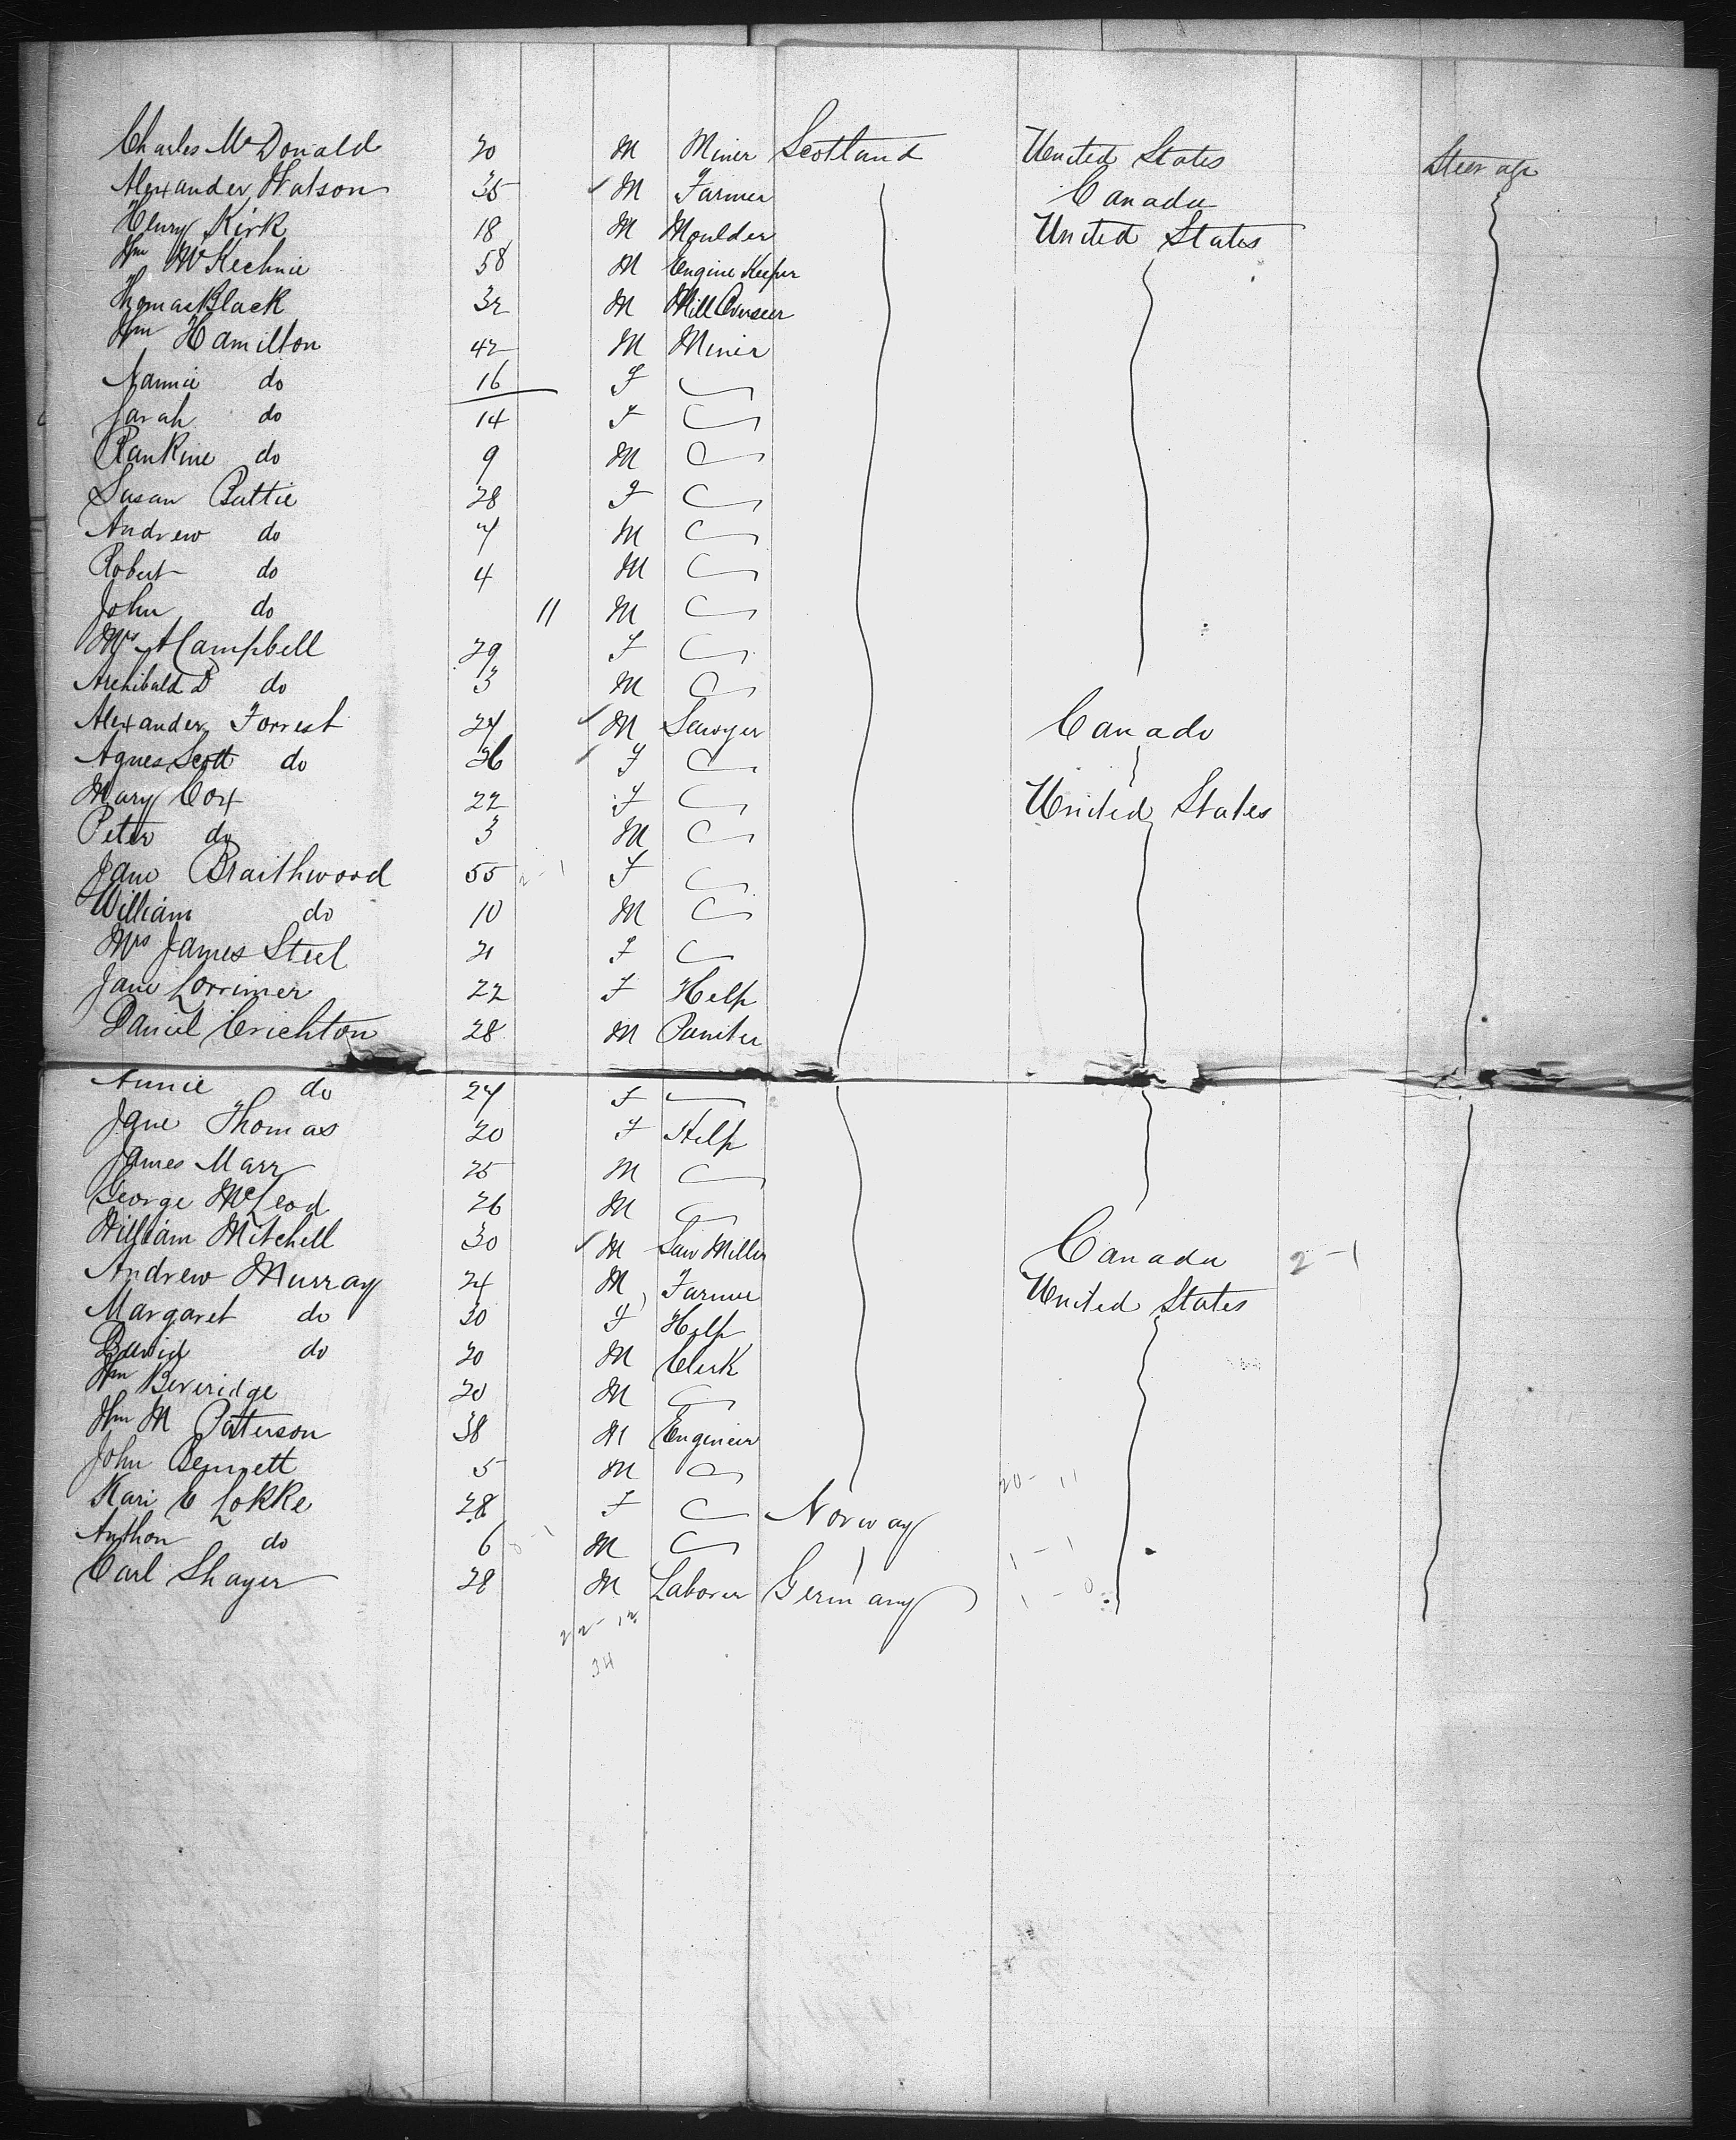 Charles McDonald 20 M Miner Scotland United States Steerage
Alexander Watson 35 ✓ M Farmer Canada
Henry Kirk 18 M Moulder United States
Wm McKechnie 58 M Engine Keeper
Thomas Black 32 M Mill Overseer
Wm Hamilton 42 M Miner
Nannie do 16 F
Sarah do 14 F
Rankine do 9 M
Susan Battie 28 F
Andrew do 7 M
Robert do 4 M
John do 11 M
Mrs A Campbell 29 F
Archibald D do 3 M
Alexander Forrest 24 ✓ M Sawyer Canada
Agnes Scott do 26 ✓ F
Mary Cox 22 F United States
Peter do 3 M
Jane Braithwood 55 2-1 F
William do 10 M
Mrs James Steel 21 F
Jane Lorrimer 22 F Help
Daniel Crichton 28 M Painter
Annie do 24 F
Jane Thomas 20 F Help
James Marr 25 M
George McLeod 26 M
William Mitchell 30 ✓ M Saw Miller Canada 2-1
Andrew Murray 24 M Farmer United States
Margaret do 30 F Help
David do 20 M Clerk
Wm Beveridge 20 M
Wm M Patterson 38 M Engineer
John Bennett 5 M 20-11
Kari C Lokke 28 F Norway
Anthon do 6 M 1-1
Carl Shayer 28 M Laborer Germany 1-0
22-12
34